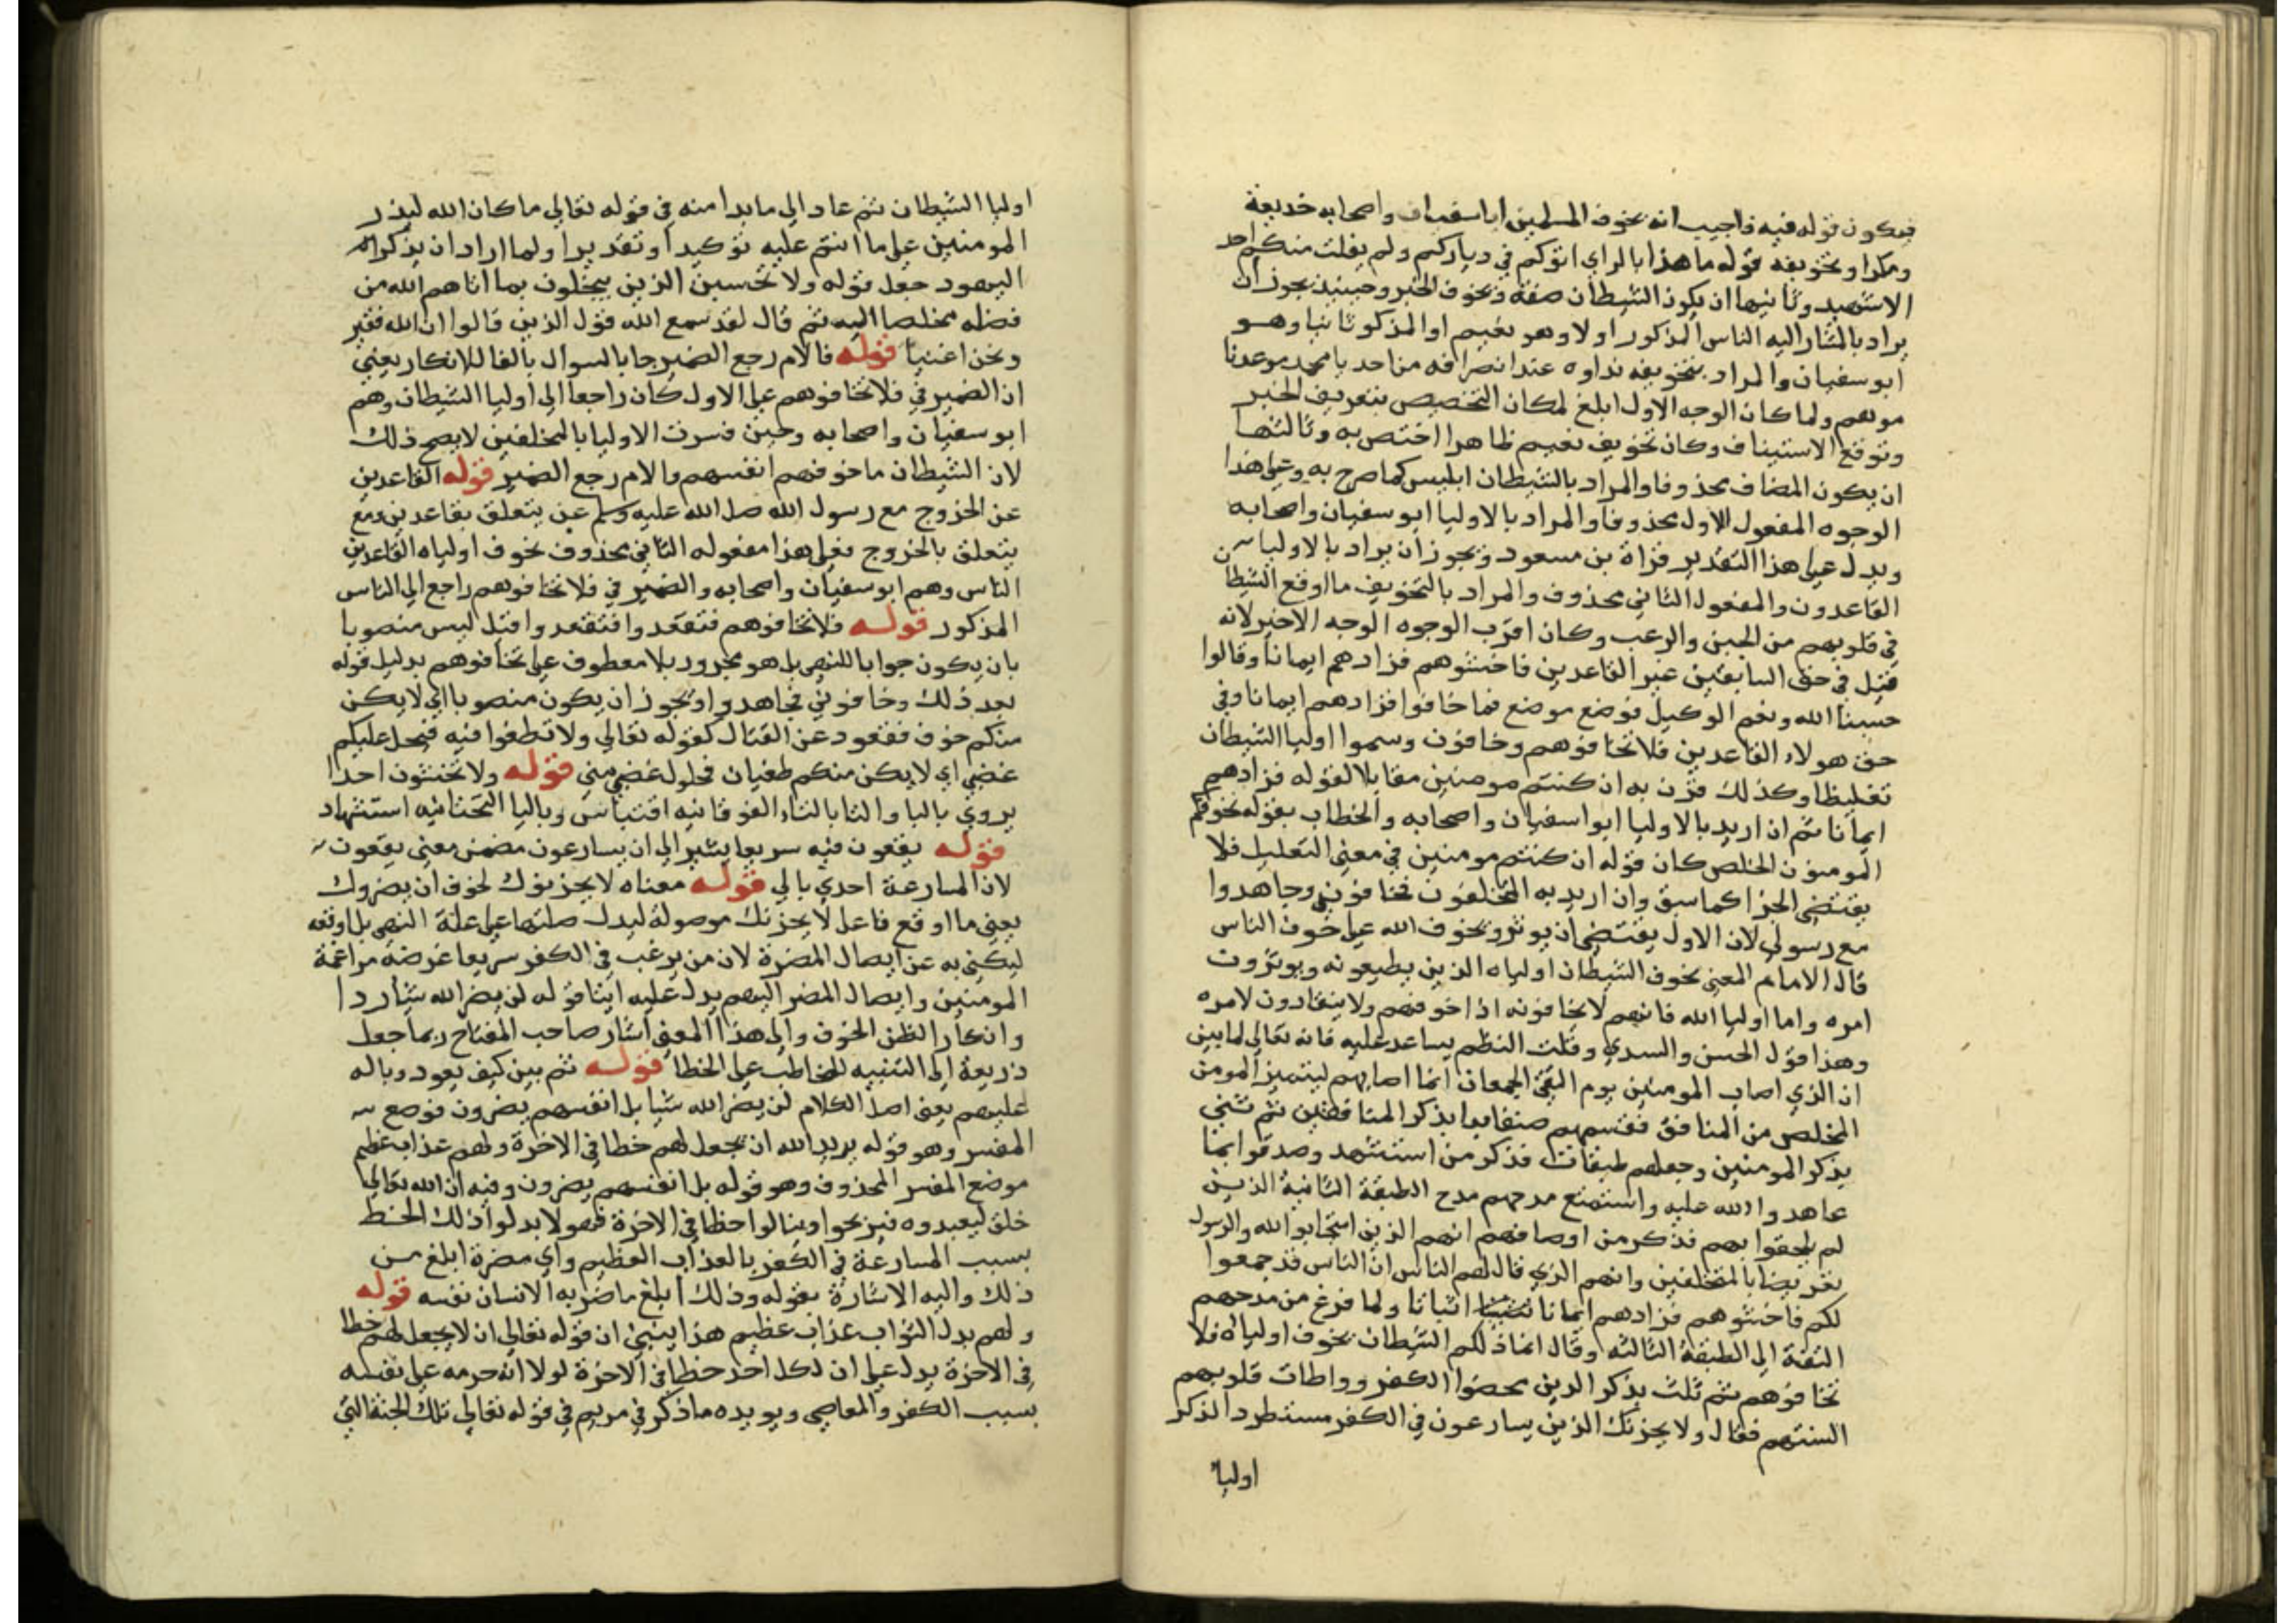 فيكون قوله فيه فاجيب انه يخوف المسلمين ابا سفيان واصحابه خديعة
ومكرا وتخويفه قوله ما هذا بالراي اتوكم في دياركم ولم يفلت منكم احد
الا شهيد وثانيها ان يكون الشيطان صفة ويخوف الخبر وحينئذ يجوز ان
يراد بالمشار اليه الناس المذكور اولا وهو نعيم او المذكور ثانيا وهو
ابو سفيان والمراد بتخويفه نداوه عند انصرافه من احد يا محمد موعدنا
موسم ولما كان الوجه الاول ابلغ لمكان التخصيص بتعريف الخبر
وتوقع الاستيناف وكان تخويف نعيم ظاهرا اختص به وثالثها
ان يكون المضاف محذوفا والمراد بالشيطان ابليس كما صرح به وعلى هذا
الوجوه المفعول الاول محذوفا والمراد بالاوليا ابو سفيان واصحابه
ويدل على هذا التقدير قراة بن مسعود ويجوز ان يراد بالاوليا
القاعدون والمفعول الثاني محذوف والمراد بالتخويف ما اوقع الشيطان
في قلوبهم من الجبن والرعب وكان اقرب الوجوه الوجه الاخير لانه
قيل في حق السابقين غير القاعدين فاخشوهم فزادهم ايمانا وقالوا
حسبنا الله ونعم الوكيل فوضع موضع فما خافوا فزادهم ايمانا وفي
حق هولاء القاعدين فلا تخافوهم وخافون وسموا اوليا الشيطان
تغليظا وكذلك قرن به ان كنتم مومنين مقابلا لقوله فزادهم
ايمانا ثم ان اريد بالاوليا ابوا سفيان واصحابه والخطاب بقوله يخوفكم
المومنون الخلص كان قوله ان كنتم مومنين في معنى التعليل فلا
يقتضي الجزا كما سبق وان اريد به المتخلفون فخافوني وجاهدوا
مع رسولي لان الاول يقتضي ان يوثر ويخوف الله على خوف الناس
قال الامام المعنى يخوف الشيطان اولياه الذين يطيعونه ويوثرون
امره واما اوليا الله فانهم لا يخافونه اذا خوفهم ولا ينقادون لامره
وهذا قول الحسن والسدي وقلت النظم يساعد عليه فانه تعالى لما بين
ان الذي اصاب المومنين يوم التقى الجمعان انما اصابهم ليتميز المومن
المخلص من المنافق فقسمهم صنفا بدا بذكر المنافقين ثم ثنى
بذكر المومنين وجعلهم طبقات فذكر من استشهد وصدقوا بما
عاهدوا الله عليه واستمتع مدحهم مدح الطبقة الثانية الذين
لم يلحقوا بهم فذكر من اوصافهم انهم الذين استجابوا لله والرسول
تعريضا بالمتخلفين وانهم الذي قال لهم الناس ان الناس قد جمعوا
لكم فاخشوهم فزادهم ايمانا اثباتا ولما فرغ من مدحهم
التفت الى الطبقة الثالثة وقال انما ذلكم الشيطان يخوف اولياه فلا
تخافوهم ثم ثلث بذكر الذين محضوا الكفر وواطات قلوبهم
السنتهم فقال ولا يحزنك الذين يسارعون في الكفر مستطردا لذكر
اوليا
اوليا الشيطان ثم عاد الى ما بدا منه في قوله تعالى ما كان الله ليذر
المومنين على ما انتم عليه توكيدا وتقديرا ولما اراد ان يذكر
اليهود جعل قوله ولا تحسبن الذين يبخلون بما اتاهم الله من
فضله مخلصا اليه ثم قال لقد سمع الله قول الذين قالوا ان الله فقير
ونحن اغنيا قوله فالام رجع الضمير جا بالسوال بالفا للانكار يعني
ان الضمير في فلا تخافوهم على الاول كان راجعا الى اوليا الشيطان وهم
ابو سفيان واصحابه وحين فسرت الاوليا بالمخلفين لا يصح ذلك
لان الشيطان ما خوفهم انفسهم والام رجع الضمير قوله القاعدين
عن الخروج مع رسول الله صلى الله عليه وسلم عن يتعلق بقاعدين ومع
يتعلق بالخروج فعلى هذا مفعوله الثاني محذوف يخوف اولياه القاعدين
الناس وهم ابو سفيان واصحابه والضمير في فلا تخافوهم راجع الى الناس
المذكور قوله فلا تخافوهم فتقعدوا فتقعدوا قيل ليس منصوبا
بان يكون جوابا للنهي بل هو مجرور بلا معطوف على تخافوهم بدليل قوله
بعد ذلك وخافوني فجاهدوا ويجوز ان يكون منصوبا اي لا يكن
منكم خوف فقعود عن القتال كقوله تعالى ولا تطغوا فيه فيحل عليكم
غضبي اي لا يكن منكم طغيان فحلول غضبي مني قوله ولا تخشون احدا
يروى باليا والتا بالتاء الفوقانيه اقتباس وباليا التحتانيه استشهاد
قوله يقعون فيه سريعا يشير الى ان يسارعون مضمن معنى يقعون
لان المسارعة احدي بالى قوله معناه لا يحزنوك لخوف ان يضروك
يعني ما اوقع فاعل لا يحزنك موصولة ليدل صلتها على علة النهي بل اوقعه
ليكني به عن ايصال المضرة لان من يرغب في الكفر سريعا غرضه مراغمة
المومنين وايصال المضر اليهم يدل عليه ايضا قوله لن يضر الله شيا ردا
وانكارا لظن الخوف والى هذا المعنى اشار صاحب المفتاح ربما جعل
ذريعة الى التنبيه للمخاطب على الخطا قوله ثم بين كيف يعود وباله
عليهم يعني اصل الكلام لن يضر الله شيا بل انفسهم يضرون فوضع
المفسر وهو قوله يريد الله ان يجعل لهم حظا في الاخرة ولهم عذاب عظيم
موضع المفسر المحذوف وهو قوله بل انفسهم يضرون وفيه ان الله تعالى
خلق ليعبدوه فيربحوا وينالوا حظا في الاخرة فهولا بدلوا ذلك الحظ
بسبب المسارعة في الكفر بالعذاب العظيم واي مضرة ابلغ من
ذلك واليه الاشارة بقوله وذلك ابلغ ما ضر به الانسان نفسه قوله
ولهم بدل الثواب عذاب عظيم هذا يبنى ان قوله تعالى ان لا يجعل لهم حظا
في الاخرة يدل على ان لكل احد حظا في الاخرة لولا انه حرمه على نفسه
بسبب الكفر والمعاصي ويويده ما ذكر في مريم في قوله تعالى تلك الجنة التي